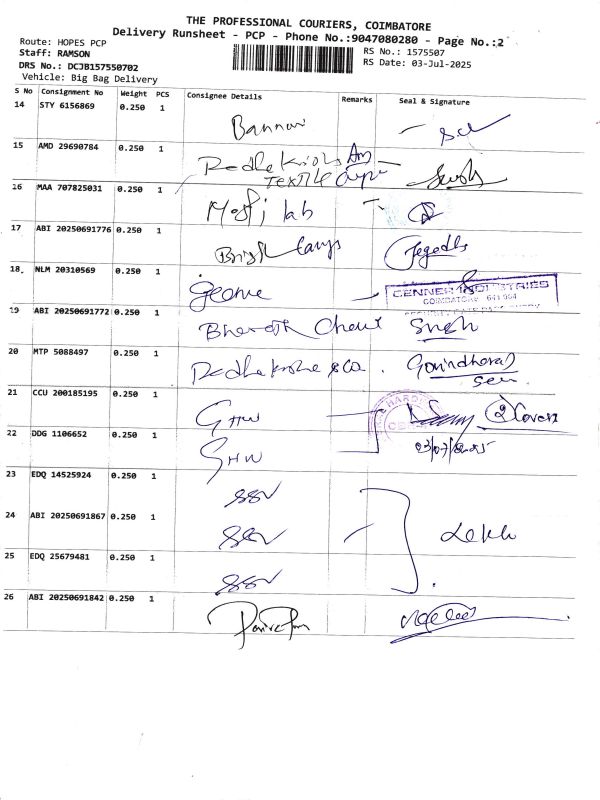 THE PROFESSIONAL COURIERS, COIMBATORE
Delivery Runsheet - PCP - Phone No.:9047080280 - Page No.:2
Route: HOPES PCP
RS No.: 1575507
Staff: RAMSON
RS Date: 03-Jul-2025
DRS No.: DCJB157550702
Vehicle: Big Bag Delivery
S No Consignment No Weight PCS Consignee Details Remarks Seal & Signature
14 STY 6156869 0.250 1 Bannari
15 AMD 29690784 0.250 1 Radhe Krishna
Textile
16 MAA 707825031 0.250 1 lab
17 ABI 20250691776 0.250 1
18. NLM 20310569 0.250 1
CENNER INDUSTRIES
COIMBATORE 641 004
19 ABI 20250691772 0.250 1 Bharath
20 MTP 5088497 0.250 1 Radhe Krishna & co. Govindharaj
21 CCU 200185195 0.250 1 GHW
22 DDG 1106652 0.250 1 GHW
03/07/2025
23 EDQ 14525924 0.250 1 SSV
24 ABI 20250691867 0.250 1 SSV
25 EDQ 25679481 0.250 1 SSV
26 ABI 20250691842 0.250 1